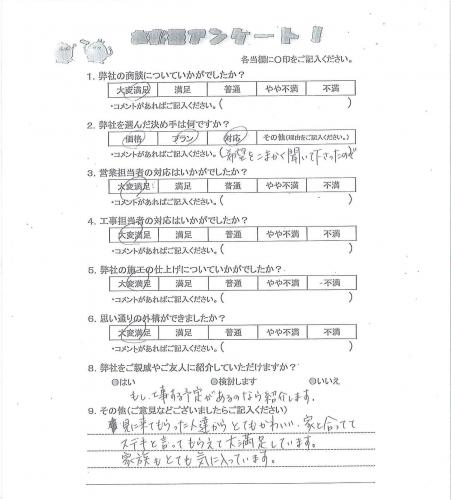 お客様アンケート!
各当欄に○印をご記入ください。
1. 弊社の商談についていかがでしたか?
大変満足 満足 普通 やや不満 不満
・コメントがあればご記入ください。( )
2. 弊社を選んだ決め手は何ですか?
価格 プラン 対応 その他(理由をご記入ください。)
・コメントがあればご記入ください。(希望をこまかく聞いて下さったので
3. 営業担当者の対応はいかがでしたか?
大変満足 満足 普通 やや不満 不満
・コメントがあればご記入ください。( )
4. 工事担当者の対応はいかがでしたか?
大変満足 満足 普通 やや不満 不満
・コメントがあればご記入ください。( )
5. 弊社の施工の仕上げについていかがでしたか?
大変満足 満足 普通 やや不満 不満
・コメントがあればご記入ください。( )
6. 思い通りの外構ができましたか?
大変満足 満足 普通 やや不満 不満
・コメントがあればご記入ください。( )
8. 弊社をご親戚やご友人に紹介していただけますか?
◎はい ◎検討します ◎いいえ
もし、工事する予定があるのなら紹介します。
9. その他(ご意見などございましたらご記入ください)
見に来てもらった人達からとてもかわいい、家と合ってて
ステキと言ってもらえて大満足しています。
家族もとても気に入っています。